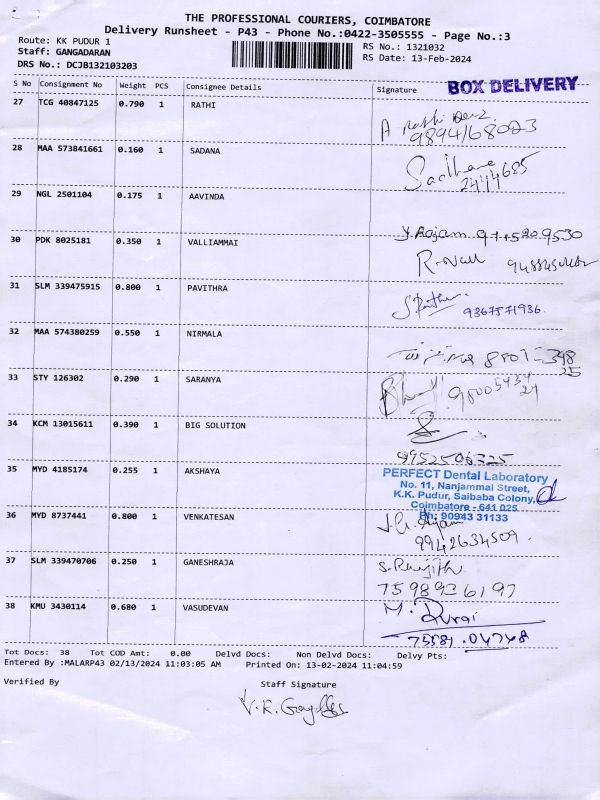 THE PROFESSIONAL COURIERS, COIMBATORE
Delivery Runsheet - P43 - Phone No.:0422-3505555 - Page No.:3
Route: KK PUDUR 1 RS No.: 1321032
Staff: GANGADARAN RS Date: 13-Feb-2024
DRS No.: DCJB132103203
S No Consignment No Weight PCS Consignee Details Signature BOX DELIVERY
27 TCG 40847125 0.790 1 RATHI
A
28 MAA 573841661 0.160 1 SADANA
Sadhana
2444685
29 NGL 2501104 0.175 1 AAVINDA
Y Rajam
30 PDK 8025181 0.350 1 VALLIAMMAI
31 SLM 339475915 0.800 1 PAVITHRA
9367571936.
32 MAA 574380259 0.550 1 NIRMALA
33 STY 126302 0.290 1 SARANYA
34 KCM 13015611 0.390 1 BIG SOLUTION
9952506325
35 MYD 4185174 0.255 1 AKSHAYA
PERFECT Dental Laboratory
No. 11, Nanjammal Street,
K.K. Pudur, Saibaba Colony,
Coimbatore - 641 025
Ph: 90943 31133
36 MYD 8737441 0.800 1 VENKATESAN
9942634509.
37 SLM 339470706 0.250 1 GANESHRAJA
S. Ranjith
7598936197
38 KMU 3430114 0.680 1 VASUDEVAN
M. Durai
75581.04748
Tot Docs: 38 Tot COD Amt: 0.00 Delvd Docs: Non Delvd Docs: Delvy Pts:
Entered By :MALARP43 02/13/2024 11:03:05 AM Printed On: 13-02-2024 11:04:59
Verified By Staff Signature
V.K.